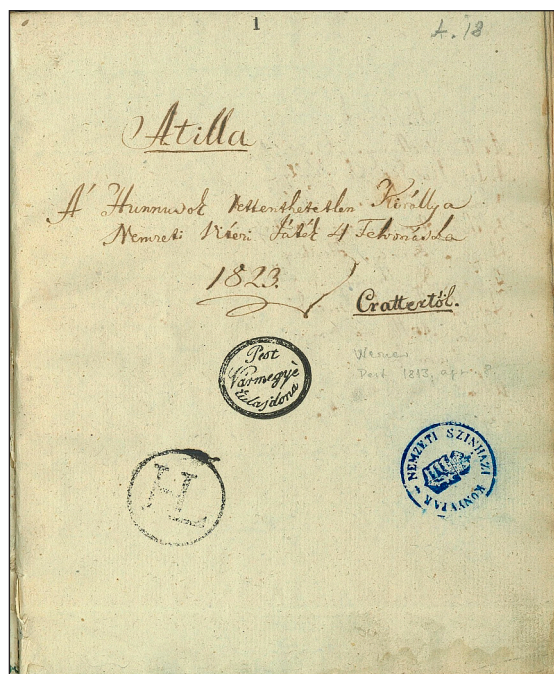 1
A. 18
Atilla
A' Hunnusok Rettenthetetlen Királlya
Nemzeti Vitézi Játék 4 Felvonásba
1823.
Crattertől.
Pest
Vármegyé
tulajdona
Werner
Pest 1813. apr.
HL
NEMZETI SZINHÁZI KÖNYVTÁR